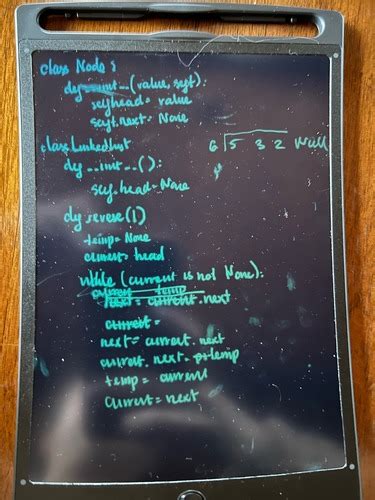 class Node:
def __init__(value, self):
self.head = value
self.next = None
class LinkedList
def __init__():
self.head = None
6 5 3 2 Null
def reverse(l)
temp = None
current = head
while (current is not None):
next = current.next
current =
next = current.next
current.next = temp
temp = current
current = next